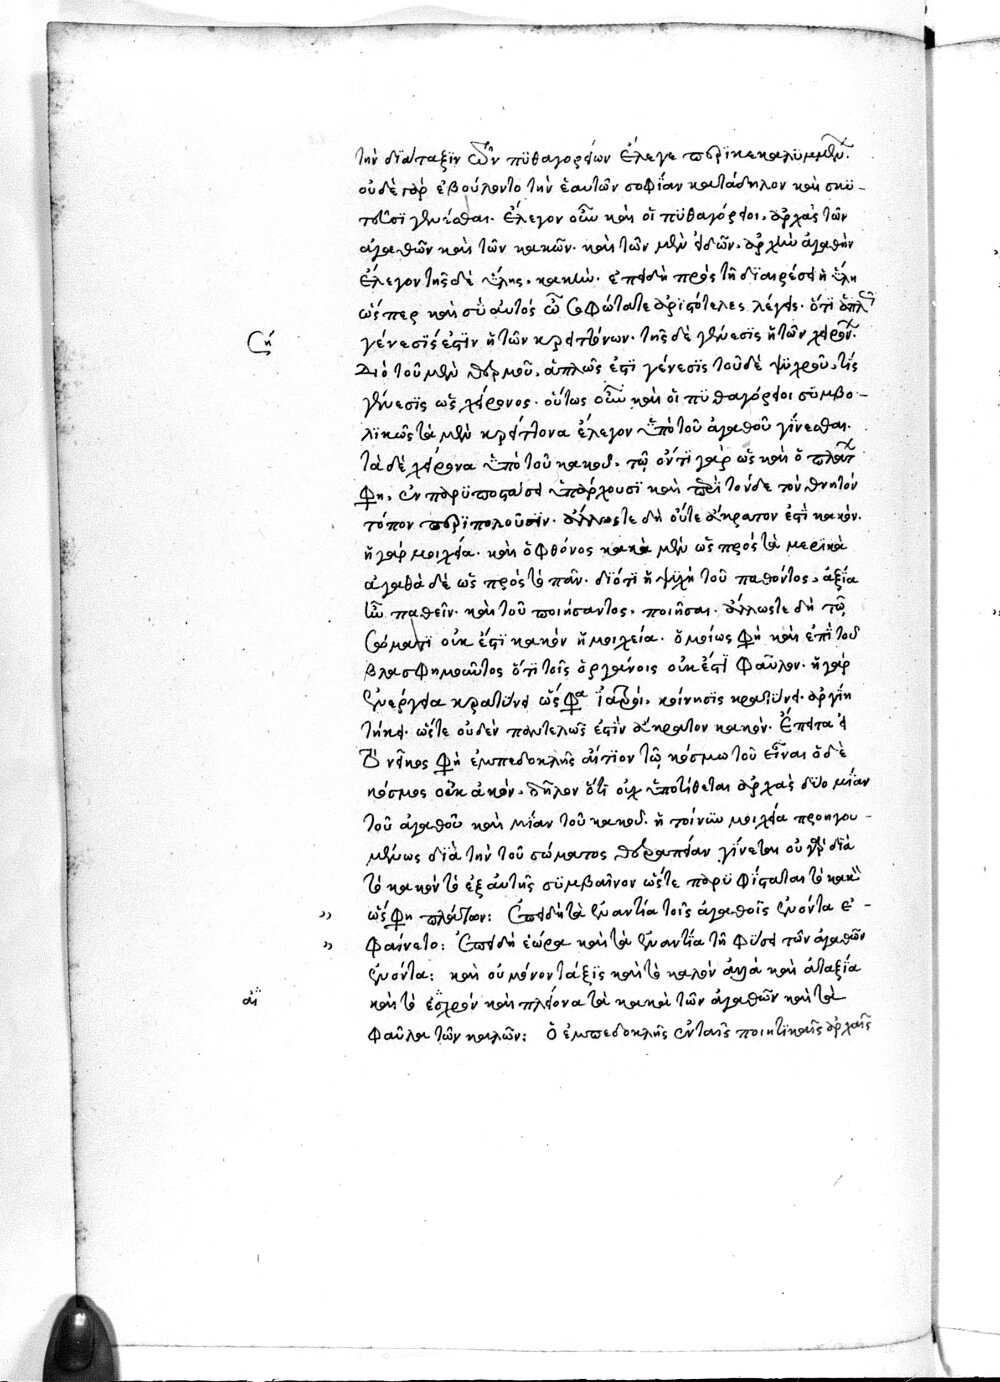 τὴν διάταξιν τῶν πυθαγορείων ἔλεγε περικεκαλυμμέν.
οὐδὲ γὰρ ἐβούλοντο τὴν ἑαυτῶν σοφίαν κατάδηλον καὶ σκυ-
τεῦσι γενέσθαι. ἔλεγον οὖν καὶ οἱ πυθαγόρειοι. ἀρχὰς τῶν
ἀγαθῶν καὶ τῶν κακῶν. καὶ τῶν μὲν εἰδῶν. ἀρχὴν ἀγαθὴν
ἔλεγον τῆς δὲ ὕλης. κακήν. ἐπειδὴ πρὸς τῇ διαιρέσει ἡ ὕλη
ὥσπερ καὶ σὺ αὐτὸς ὦ σοφώτατε ἀριστότελες λέγεις. ὅτι ἁπλ
γένεσίς ἐστιν ἡ τῶν κρειττόνων. τὶς δὲ γένεσις ἡ τῶν χειρόν.
σή
Διὸ τοῦ μὲν θερμοῦ. ἁπλῶς ἐστι γένεσις τοῦ δὲ ψυχροῦ. τίς
γένεσις ὡς χείρονος. οὕτως οὖν καὶ οἱ πυθαγόρειοι συμβο-
λικῶς τὰ μὲν κρείττονα ἔλεγον ὑπὸ τοῦ ἀγαθοῦ γίνεσθαι.
τὰ δὲ χείρονα ὑπὸ τοῦ κακοῦ. τῷ ὄντι γὰρ ὡς καὶ ὁ πλάτ
φη. ἐν παρυποστάσει ὑπάρχουσι καὶ περὶ τόνδε τὸν θνητὸν
τόπον περιπολοῦσιν. ἄλλωστε δὴ οὔτε ἄκρατον ἐστὶ κακόν.
ἡ γὰρ μοιχεία. καὶ ὁ φθόνος κακὰ μὲν ὡς πρὸς τὰ μερικὰ
ἀγαθὰ δὲ ὡς πρὸς τὸ πᾶν. διότι ἡ ψυχὴ τοῦ παθόντος. ἀξία
ἦν παθεῖν. καὶ τοῦ ποιήσαντος. ποιῆσαι. ἄλλωστε δὴ τῷ
σώματι οὐκ ἔστι κακὸν ἡ μοιχεία. ὁμοίως φη καὶ ἐπὶ τοῦ
βλασφημοῦντος ὅτι τοῖς ὀργάνοις οὐκ ἔστι φαῦλον. ἡ γὰρ
ἐνέργεια κρατύνει ὥς φα ἰατροί. κοίνησις κρατύνει. ἀργίη
τήκει. ὥστε οὐδὲν παντελῶς ἐστὶν ἄκρατον κακόν. Ἔπειτα εἰ
τὸ νεῖκος φη ἐμπεδοκλῆς αἴτιον τῷ κόσμω τοῦ εἶναι ὁ δὲ
κόσμος οὐκ ἄκον. δῆλον ὅτι οὐχ ὑποτίθεται ἀρχὰς δύο μίαν
τοῦ ἀγαθοῦ καὶ μίαν τοῦ κακοῦ. ἡ τοίνυν μοιχεία προηγου-
μένως διὰ τὴν τοῦ σώματος θεραπείαν γίνεται οὐ γὰρ διὰ
τὸ κακὸν τὸ ἐξ αὐτῆς συμβαῖνον ὥστε παρυφίσταται τὸ κακὸν
ὥς φη πλάτων: Ἐπειδὴ τὰ ἐναντία τοῖς ἀγαθοῖς ἐνόντα ἐ-
φαίνετο: Ἐπειδὴ ἑώρα καὶ τὰ ἐναντία τῇ φύσει τῶν ἀγαθῶν
ἐνόντα: καὶ οὐ μόνον τάξις καὶ τὸ καλὸν ἀλλὰ καὶ ἀταξία
καὶ τὸ αἰσχρὸν καὶ πλείονα τὰ κακὰ τῶν ἀγαθῶν καὶ τὰ
αἰ
φαῦλα τῶν καλῶν: Ὁ ἐμπεδοκλῆς ἐν ταῖς ποιητικαῖς ἀρχαῖς